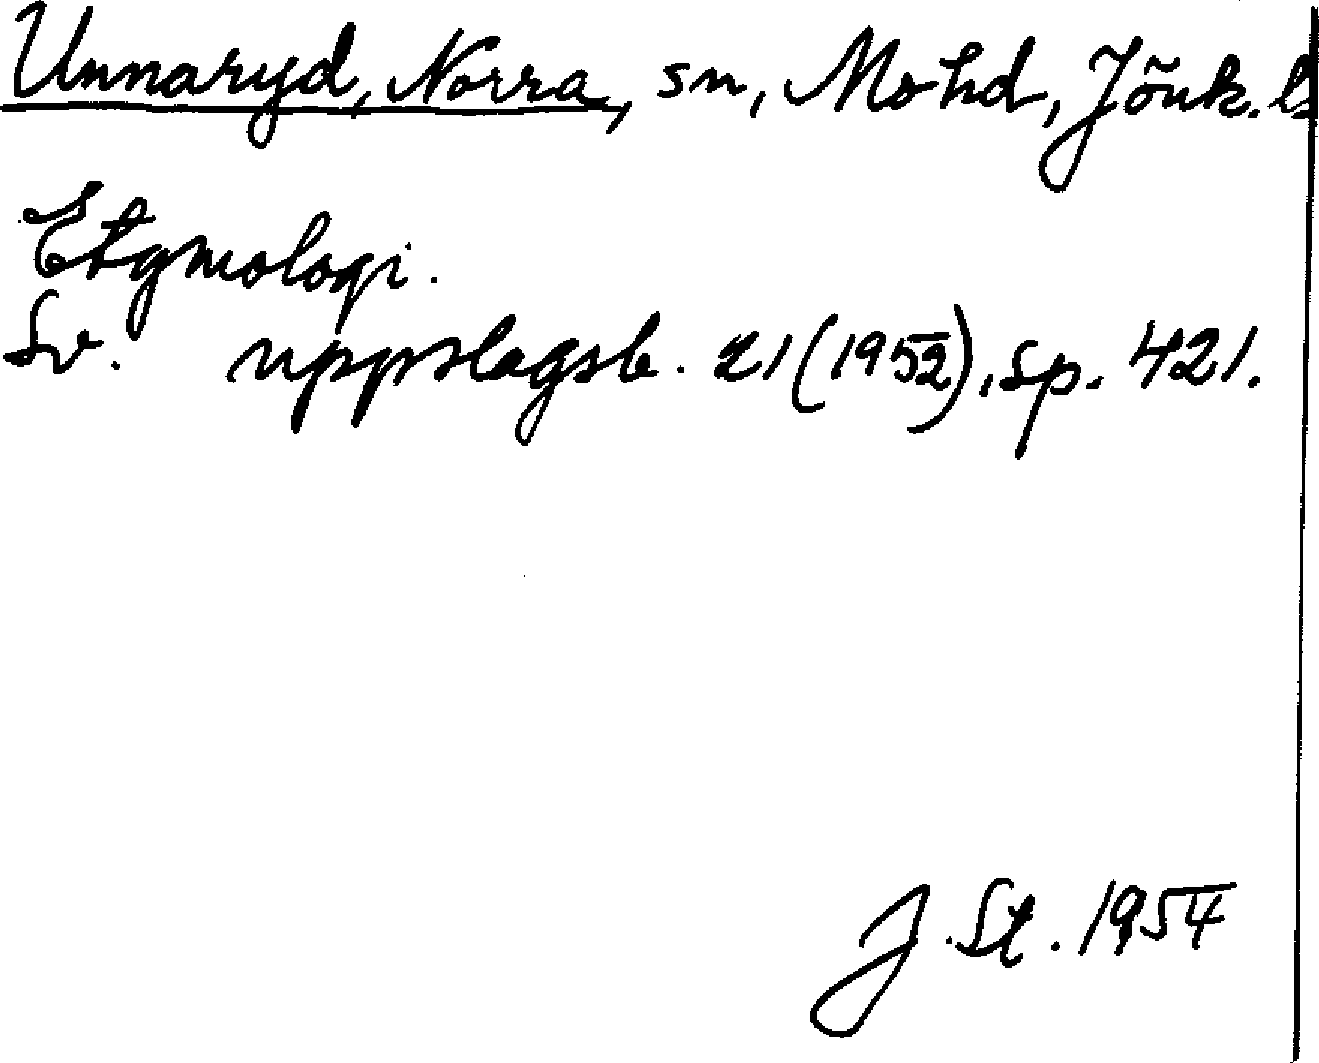 Unnaryd, Norra, sn, Mo hd, Jönk. ls
Etymologi.
Sv. uppslagsb. 21 (1952), sp. 421.
J. St. 1954